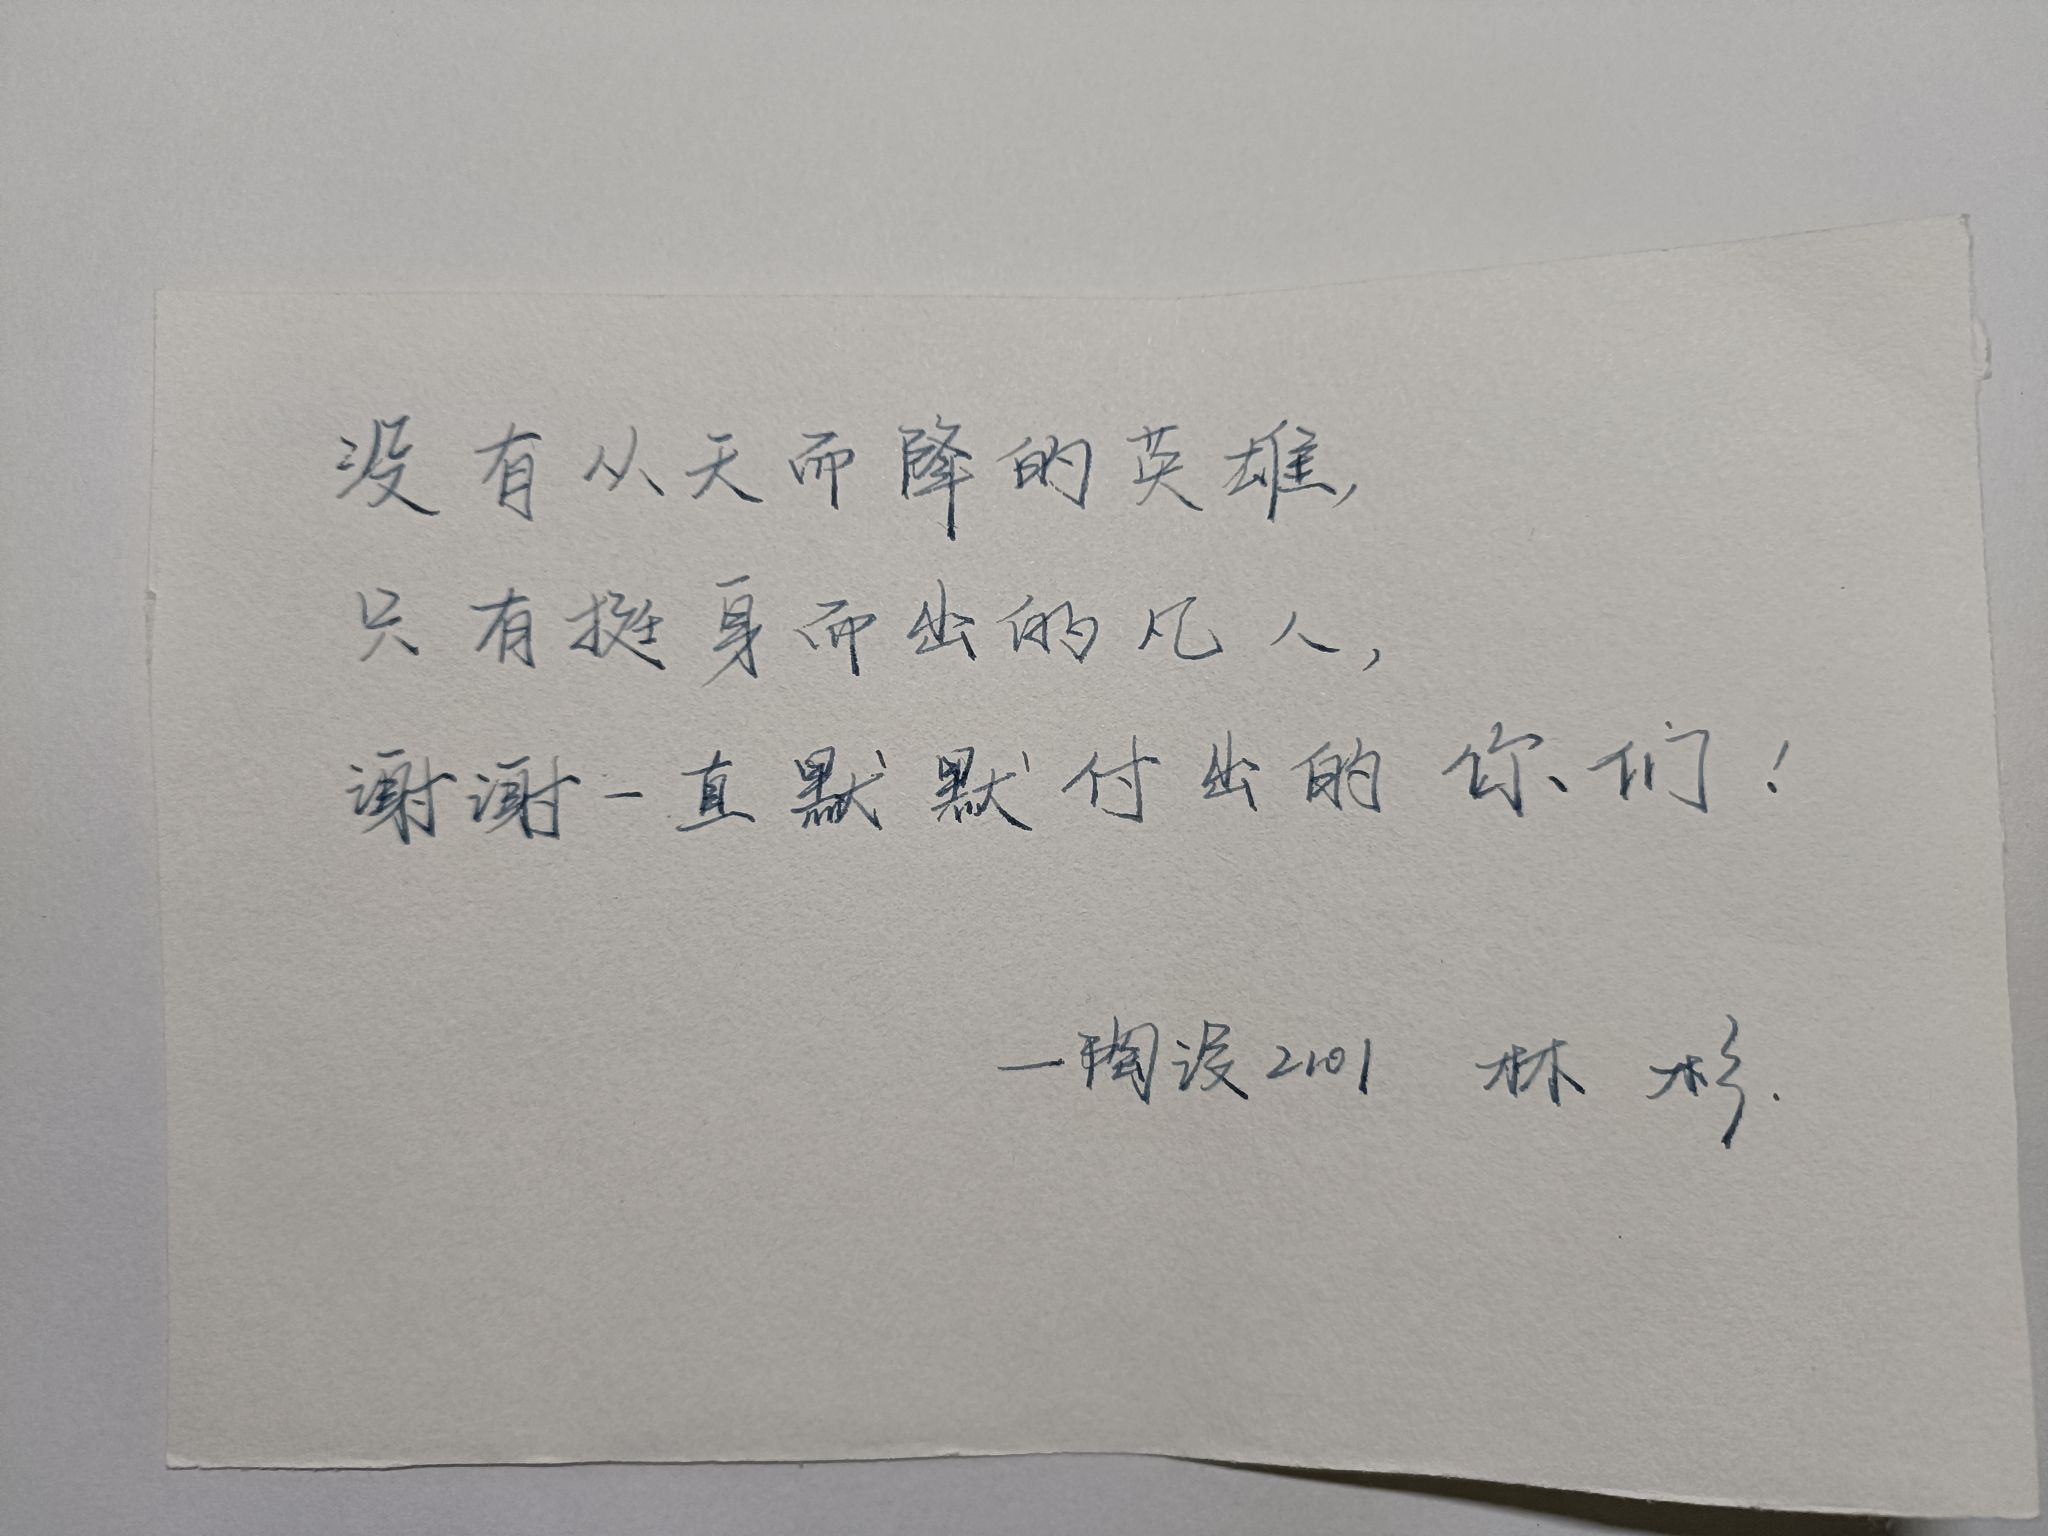 没有从天而降的英雄,
只有挺身而出的凡人,
谢谢一直默默付出的你们!
—陶设2101 林杉.